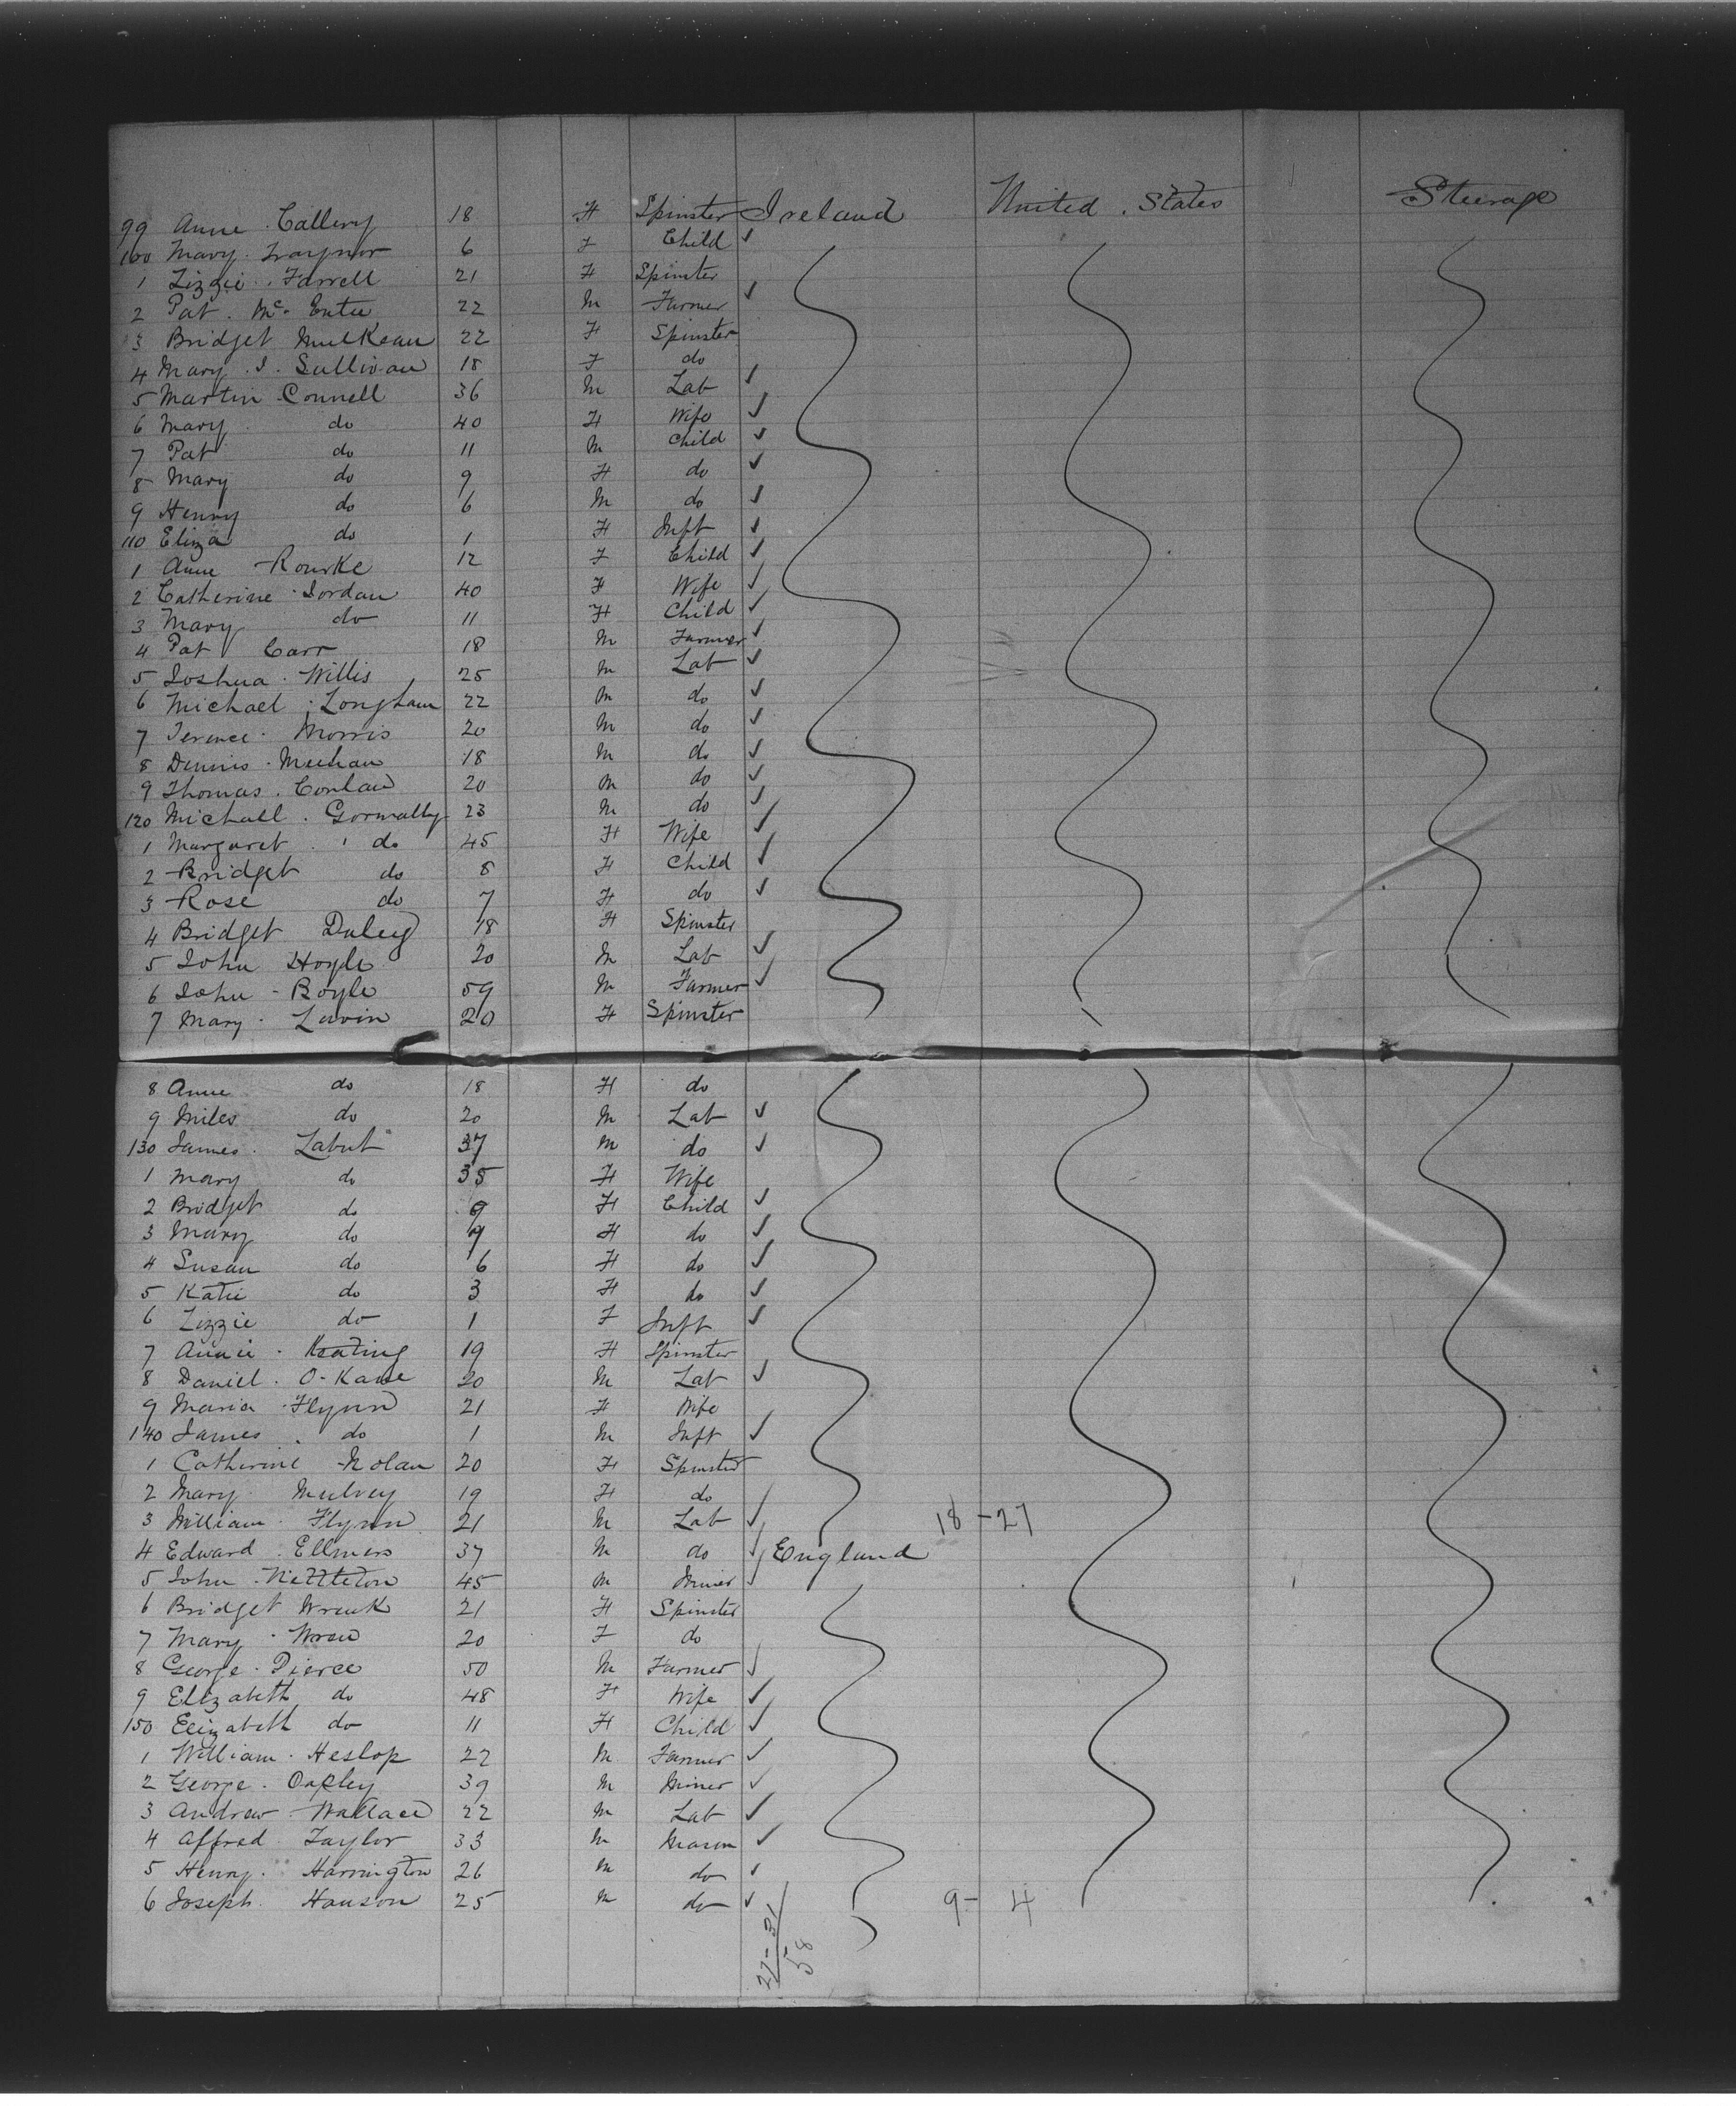 99 Anne Callery 18 F Spinster Ireland United States Steerage
100 Mary Traynor 6 F Child
1 Lizzie Farrell 21 F Spinster
2 Pat Mc Entee 22 M Farmer
3 Bridget Mulkeau 22 F Spinster
4 Mary J. Sullivan 18 F do
5 Martin Connell 36 M Lab
6 Mary do 40 F Wife
7 Pat do 11 M Child
8 Mary do 9 F do
9 Henry do 6 M do
110 Eliza do 1 F Inft
1 Anne Rourke 12 F Child
2 Catherine Jordan 40 F Wife
3 Mary do 11 F Child
4 Pat Carr 18 M Farmer
5 Joshua Willis 25 M Lab
6 Michael Longham 22 M do
7 Terence Morris 20 M do
8 Dennis Meehan 18 M do
9 Thomas Conlan 20 M do
120 Michall Gormally 23 M do
1 Margaret do 45 F Wife
2 Bridget do 8 F Child
3 Rose do 7 F do
4 Bridget Daley 18 F Spinster
5 John Hoyle 20 M Lab
6 John Boyle 59 M Farmer
7 Mary Lavin 20 F Spinster
8 Anne do 18 F do
9 Miles do 20 M Lab
130 James Labut 37 M do
1 Mary do 35 F Wife
2 Bridget do 9 F Child
3 Mary do 9 F do
4 Susan do 6 F do
5 Katie do 3 F do
6 Lizzie do 1 F Inft
7 Annie Keating 19 F Spinster
8 Daniel O-Kane 20 M Lab
9 Maria Flynn 21 F Wife
140 James do 1 M Inft
1 Catherine Nolan 20 F Spinster
2 Mary Mulvey 19 F do
3 William Flynn 21 M Lab 18-27
4 Edward Ellmers 37 M do England
5 John Nettleton 45 M Miner
6 Bridget Wrenk 21 F Spinster
7 Mary Wren 20 F do
8 George Pierce 50 M Farmer
9 Elizabeth do 48 F Wife
150 Elizabeth do 11 F Child
1 William Heslop 22 M Farmer
2 George Oxpley 39 M Miner
3 Andrew Wallace 22 M Lab
4 Alfred Taylor 33 M Mason
5 Henry Harrington 26 M do
6 Joseph Hanson 25 M do 9-4
27-31
58